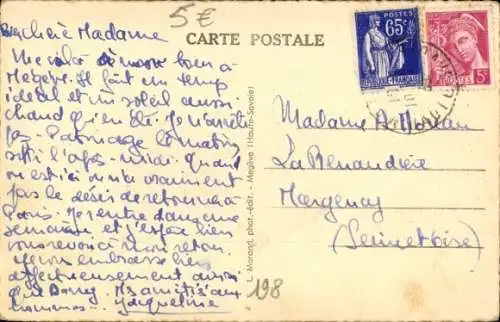 5€
Bien chère Madame
CARTE POSTALE
65c
POSTES FRANÇAISE
POSTES 5c
Me voilà de nouveau à
Megève. Il fait un temps
idéal et un soleil aussi
chaud qu'en été. Je
pas - Patinage le matin
ski l'après-midi. Quand
on est ici on n'a vraiment
pas le désir de retourner à
Paris. Je rentre dans une
semaine et j'espère bien
vous revoir à mon retour.
Je vous embrasse bien
affectueusement ainsi
que Dany. Mes amitiés aux
hommes... Jacqueline
L. Morand, phot.-édit. - Megève (Haute-Savoie)
Madame A.
La Renardière
Margency
(Seine et Oise)
198